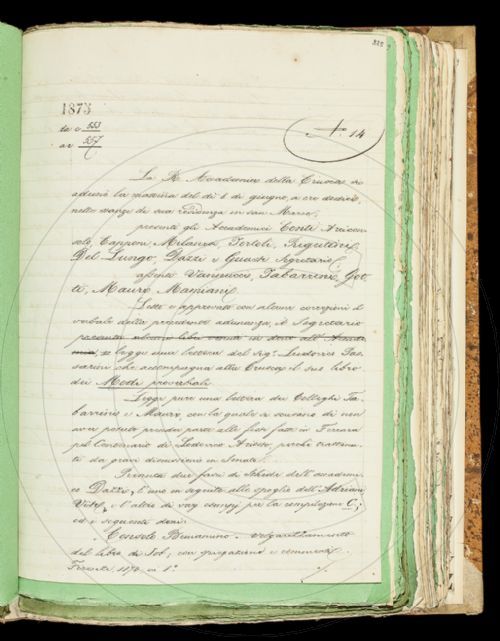 1875
da c 553
a c 557
N.º 14
La R. Accademia della Crusca si
adunò la mattina del dì 8 di giugno, a ore dodici,
nelle stanze di sua residenza in San Marco,
presenti gli Accademici Conti Arcicon-
solo, Capponi, Milanesi, Tortoli, Rigutini,
Del Lungo, Dazzi e Guasti Segretario,
assenti Vannucci, Tabarrini, Got-
ti, Mauro, Mamiani.
Letto e approvato con alcune correzioni il
verbale della precedente adunanza, il Segretario
legge una lettera del sig. Ludovico Pas-
sarini che accompagna alla Crusca il suo libro
dei Modi proverbiali.
Legge pure una lettera dei Colleghi Ta-
barrini e Mauro, con la quale si scusano di non
aver potuto prender parte alle feste fatte in Ferrara
pel Centenario di Lodovico Ariosto, perché trattenu-
ti da gravi discussioni in Senato.
Presenta due fasci di schede dell'accademi-
co Dazzi, l'uno in seguito allo spoglio dell'Adriani
Vite, e l'altro di vary esempj per la compilazione C;
ed i seguenti doni:
Console Beniamino - Volgarizzamento
del libro di Job, con
Firenze, 1874 in 8.º